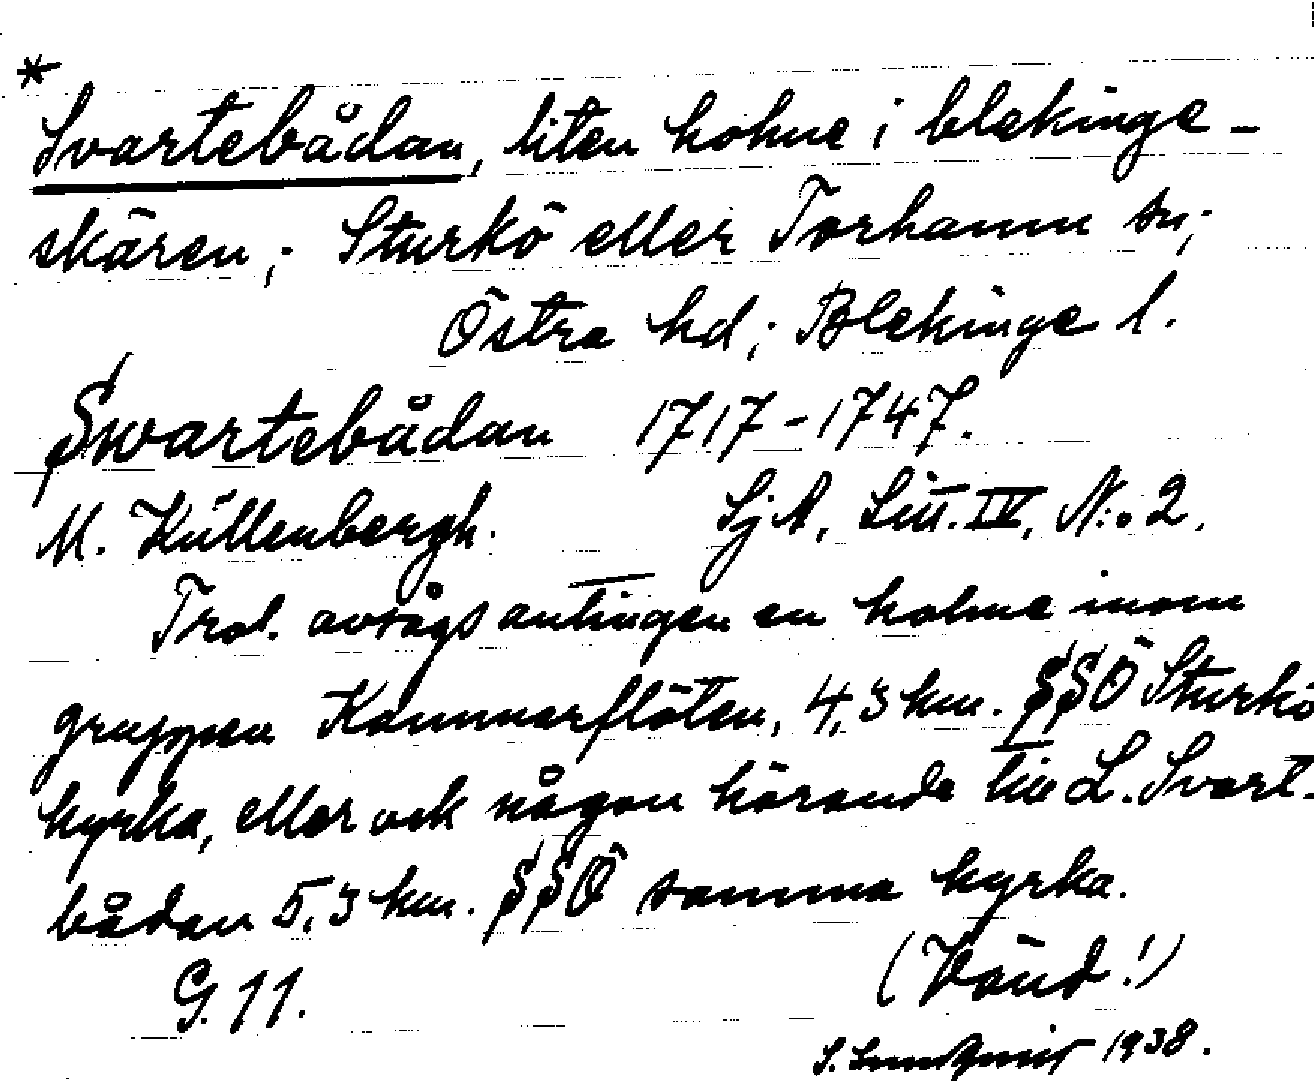 *
Svartebådan, liten holme i blekinge-
skären; Sturkö eller Torhamn sn;
Östra hd; Blekinge l.
Swartebådan 1717-1747.
M. Küllenbergh. SjA, Litt. IV, N:o 2.
Trol. avsågs antingen en holme inom
gruppen Kammarflöten, 4,3 km. SSÖ Sturkö
kyrka, eller ock någon hörande till L. Svart-
bådan 5,3 km. SSÖ samma kyrka.
G. 11. (Vänd!)
S. Lundqvist 1938.